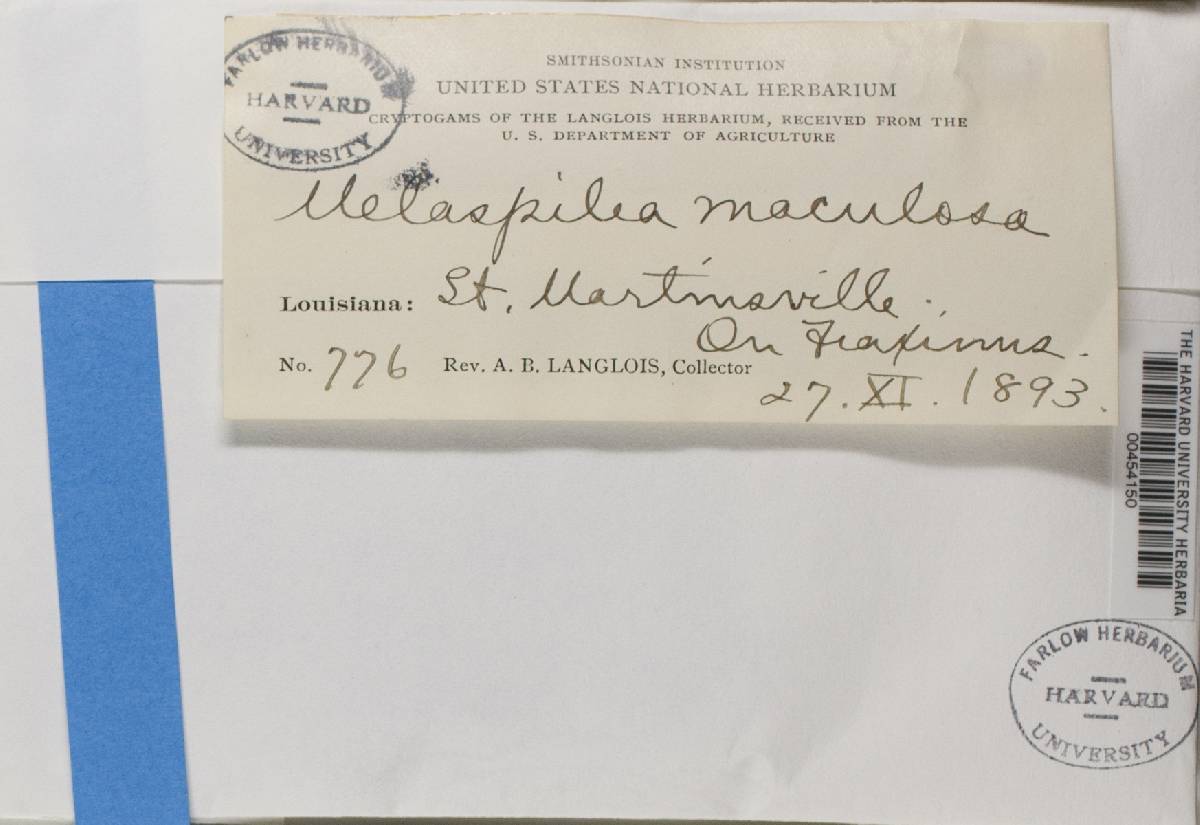 FARLOW HERBARIUM
HARVARD
UNIVERSITY
SMITHSONIAN INSTITUTION
UNITED STATES NATIONAL HERBARIUM
CRYPTOGAMS OF THE LANGLOIS HERBARIUM, RECEIVED FROM THE
U. S. DEPARTMENT OF AGRICULTURE
Melaspilea maculosa
Louisiana: St. Martinsville.
On Fraxinus.
No. 776 Rev. A. B. LANGLOIS, Collector
27. XI. 1893.
THE HARVARD UNIVERSITY HERBARIA
00454150
FARLOW HERBARIUM
HARVARD
UNIVERSITY